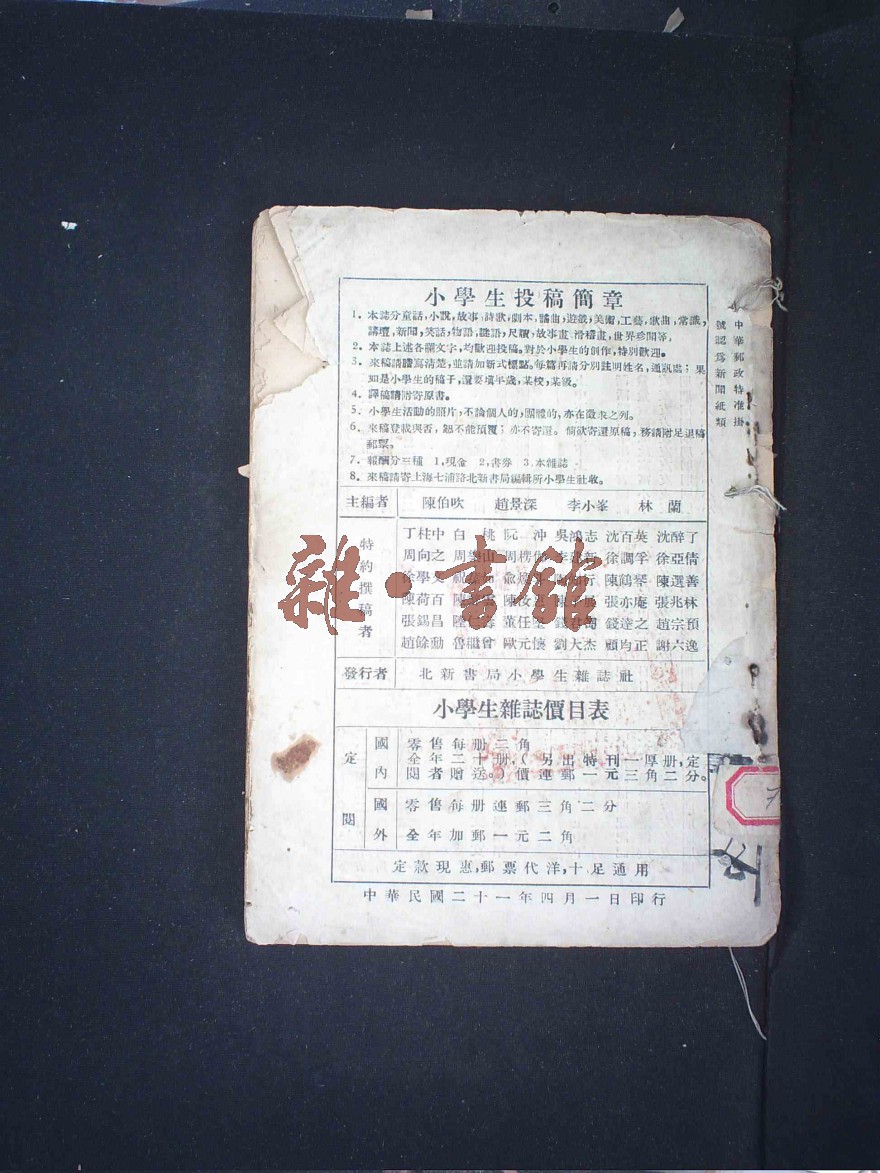 小學生投稿簡章
1. 本誌分童話,小說,故事,詩歌,劇本,謠曲,遊戲,美術,工藝,歌曲,常識,
講壇,新聞,笑話,物語,謎語,尺牘,故事畫,滑稽畫,世界珍聞等,
2. 本誌上述各欄文字,均歡迎投稿。對於小學生的創作,特別歡迎。
3. 來稿請謄寫清楚,並請加新式標點。每篇再請分別註明姓名,通訊處;果
如是小學生的稿子,還要填年歲,某校,某級。
4. 譯稿請附寄原書。
5. 小學生活動的照片,不論個人的,團體的,亦在徵求之列。
6. 來稿登載與否,恕不能預覆;亦不寄還。倘欲寄還原稿,務請附足退稿
郵票。
7. 報酬分三種 1,現金 2,書券 3.本雜誌
8. 來稿請寄上海七浦路北新書局編輯所小學生社收。
主編者 陳伯吹 趙景深 李小峯 林蘭
特約撰稿者
丁柱中 白桃 阮沖 吳鴻志 沈百英 沈醉了
周向之 徐調孚 徐亞倩
陳鶴琴 陳選善
陳荷百 張亦庵 張兆林
張錫昌 錢達之 趙宗預
趙餘勳 魯繼曾 歐元懷 劉大杰 顧均正 謝六逸
發行者 北新書局小學生雜誌社
小學生雜誌價目表
定閱
國內 零售每册二角
全年二十册,(另出特刊一厚册,定
閱者贈送。)價連郵一元三角二分。
國外 零售每册連郵三角二分
全年加郵一元二角
定款現惠,郵票代洋,十足通用
中華民國二十一年四月一日印行
中華郵政特准掛
號認爲新聞紙類
雜·書館